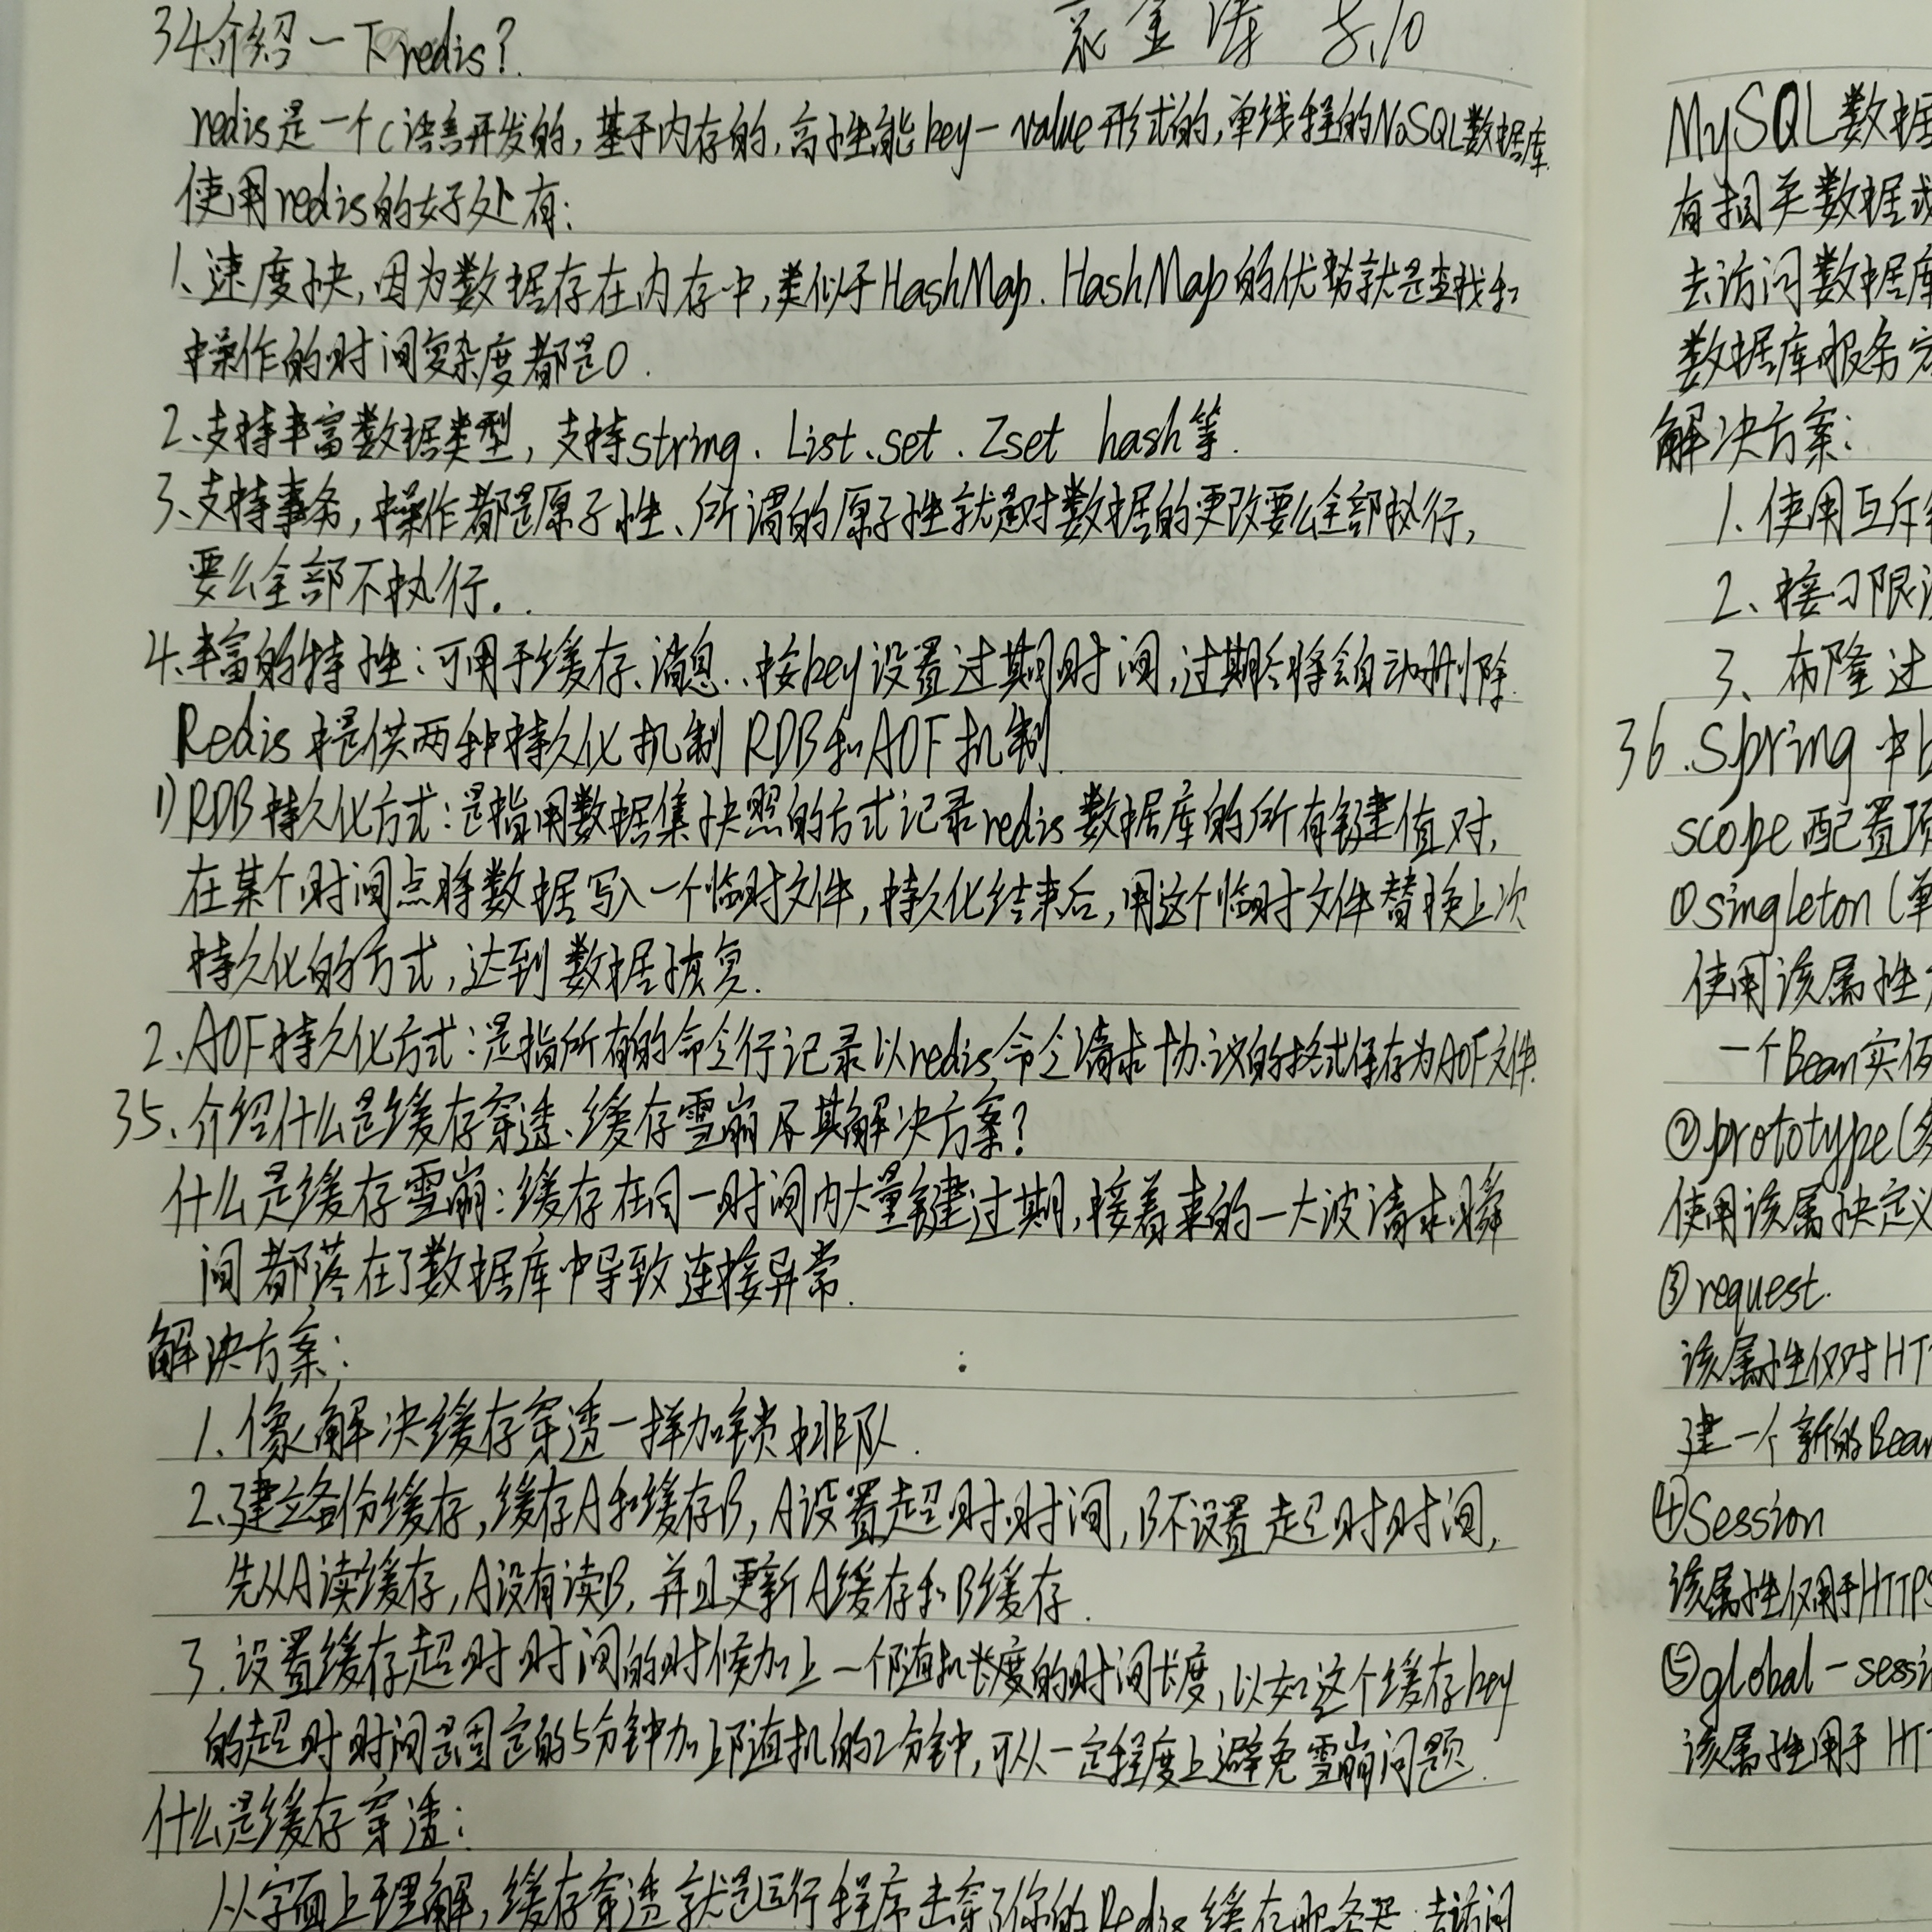 34.介绍一下redis?
金涛 5.10
redis是一个c语言开发的,基于内存的,高性能key-value形式的,单线程的NoSQL数据库.
使用redis的好处有:
1、速度快,因为数据存在内存中,类似于HashMap. HashMap的优势就是查找和
操作的时间复杂度都是O.
2、支持丰富数据类型,支持string、List、set、Zset hash等.
3、支持事务,操作都是原子性、所谓的原子性就是对数据的更改要么全部执行,
要么全部不执行..
4.丰富的特性:可用于缓存、消息..按key设置过期时间,过期后将会自动删除.
Redis提供两种持久化机制 RDB和AOF机制.
1)RDB持久化方式:是指用数据集快照的方式记录redis数据库的所有键值对,
在某个时间点将数据写入一个临时文件,持久化结束后,用这个临时文件替换上次
持久化的方式,达到数据恢复.
2.AOF持久化方式:是指所有的命令行记录以redis命令请求协议的格式保存为AOF文件.
35、介绍什么是缓存穿透、缓存雪崩及其解决方案?
什么是缓存雪崩:缓存在同一时间内大量键过期,接着来的一大波请求瞬
间都落在了数据库中导致连接异常.
解决方案:
1.像解决缓存穿透一样加锁排队.
2.建立备份缓存,缓存A和缓存B,A设置超时时间,B不设置超时时间,
先从A读缓存,A没有读B,并且更新A缓存和B缓存.
3.设置缓存超时时间的时候加上一个随机长度的时间长度,以如这个缓存key
的超时时间是固定的5分钟加上随机的2分钟,可从一定程度上避免雪崩问题.
什么是缓存穿透:
从字面上理解,缓存穿透就是运行程序击穿了你的Redis缓存服务器,去访问
MySQL数据
有相关数据或
去访问数据库
数据库服务
解决方案:
1.使用互斥
2、接口限
3、布隆过
36.Spring中
scope配置项
①singleton(单
使用该属性
一个Bean实
②prototype(多
使用该属性定义
③request.
该属性仅对HT
建一个新的Bean
④Session
该属性仅用于HTTP
⑤global-sessi
该属性用于HT